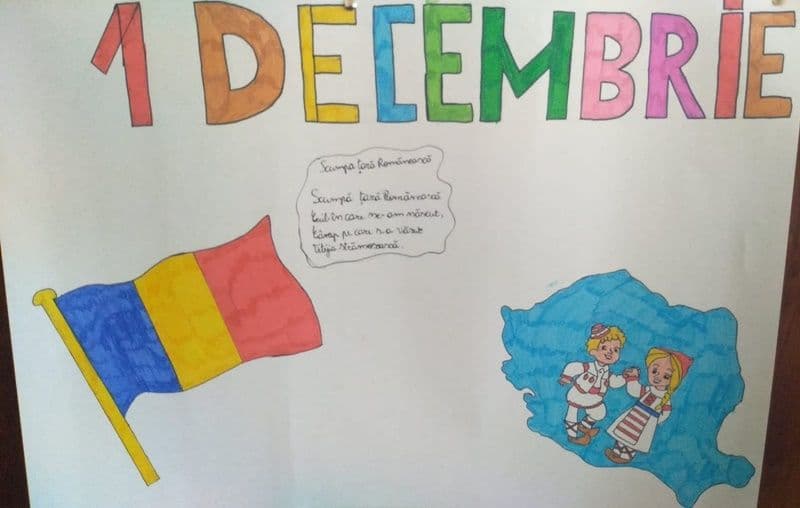 1 DECEMBRIE
Scumpă țară Românească
Scumpă țară Românească
Cuib în care ne-am născut,
Câmp pe care s-a văzut
Vitejia strămoșească.